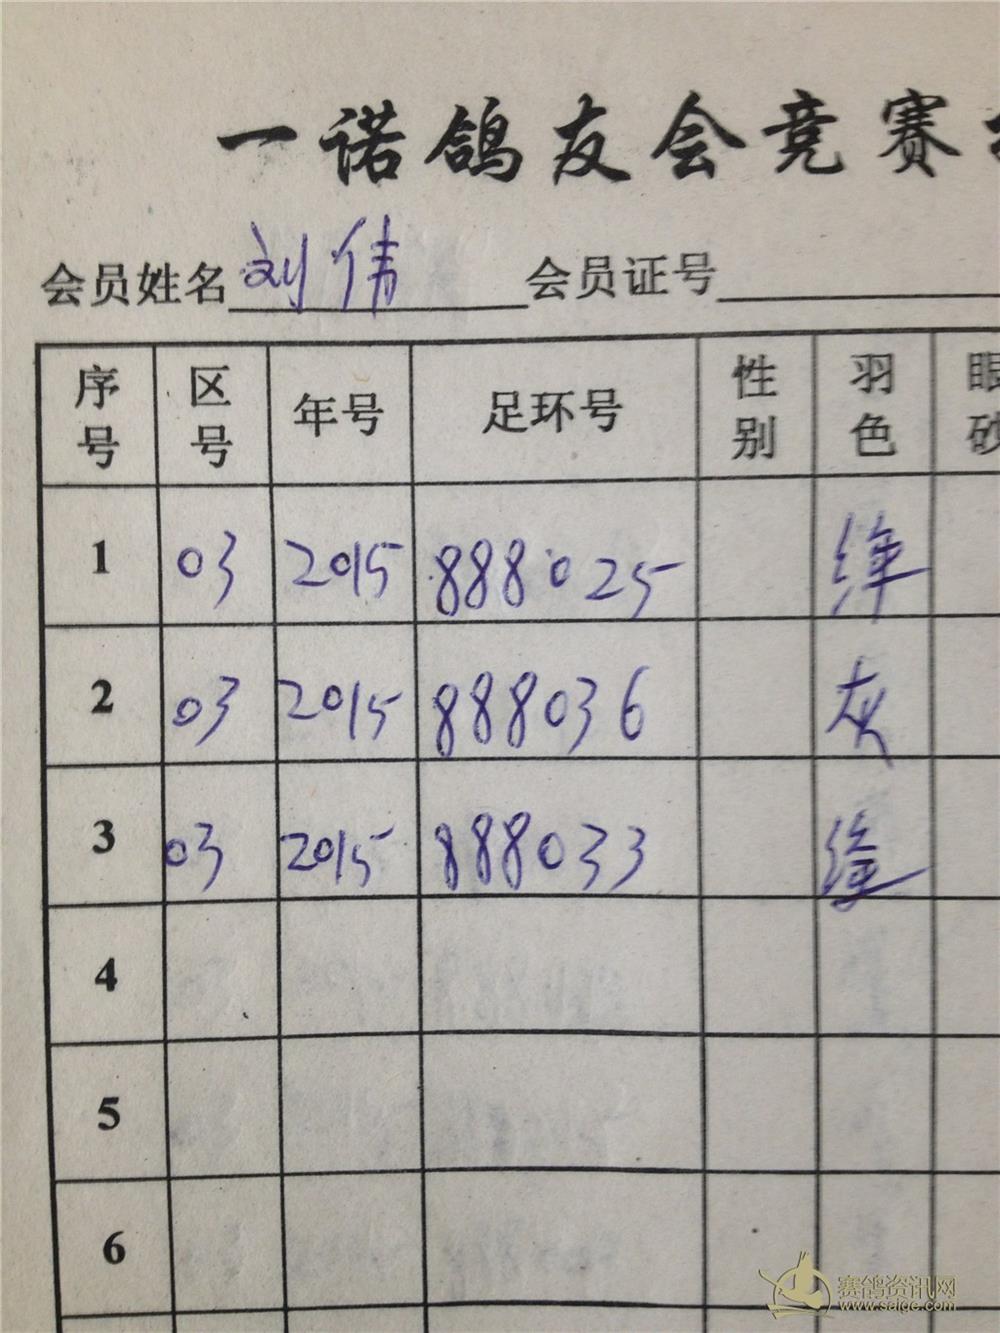 一诺鸽友会竞赛
会员姓名 刘伟 会员证号
序号 区号 年号 足环号 性别 羽色 眼砂
1 03 2015 888025 绛
2 03 2015 888036 灰
3 03 2015 888033 绛
4
5
6
赛鸽资讯网
www.saige.com